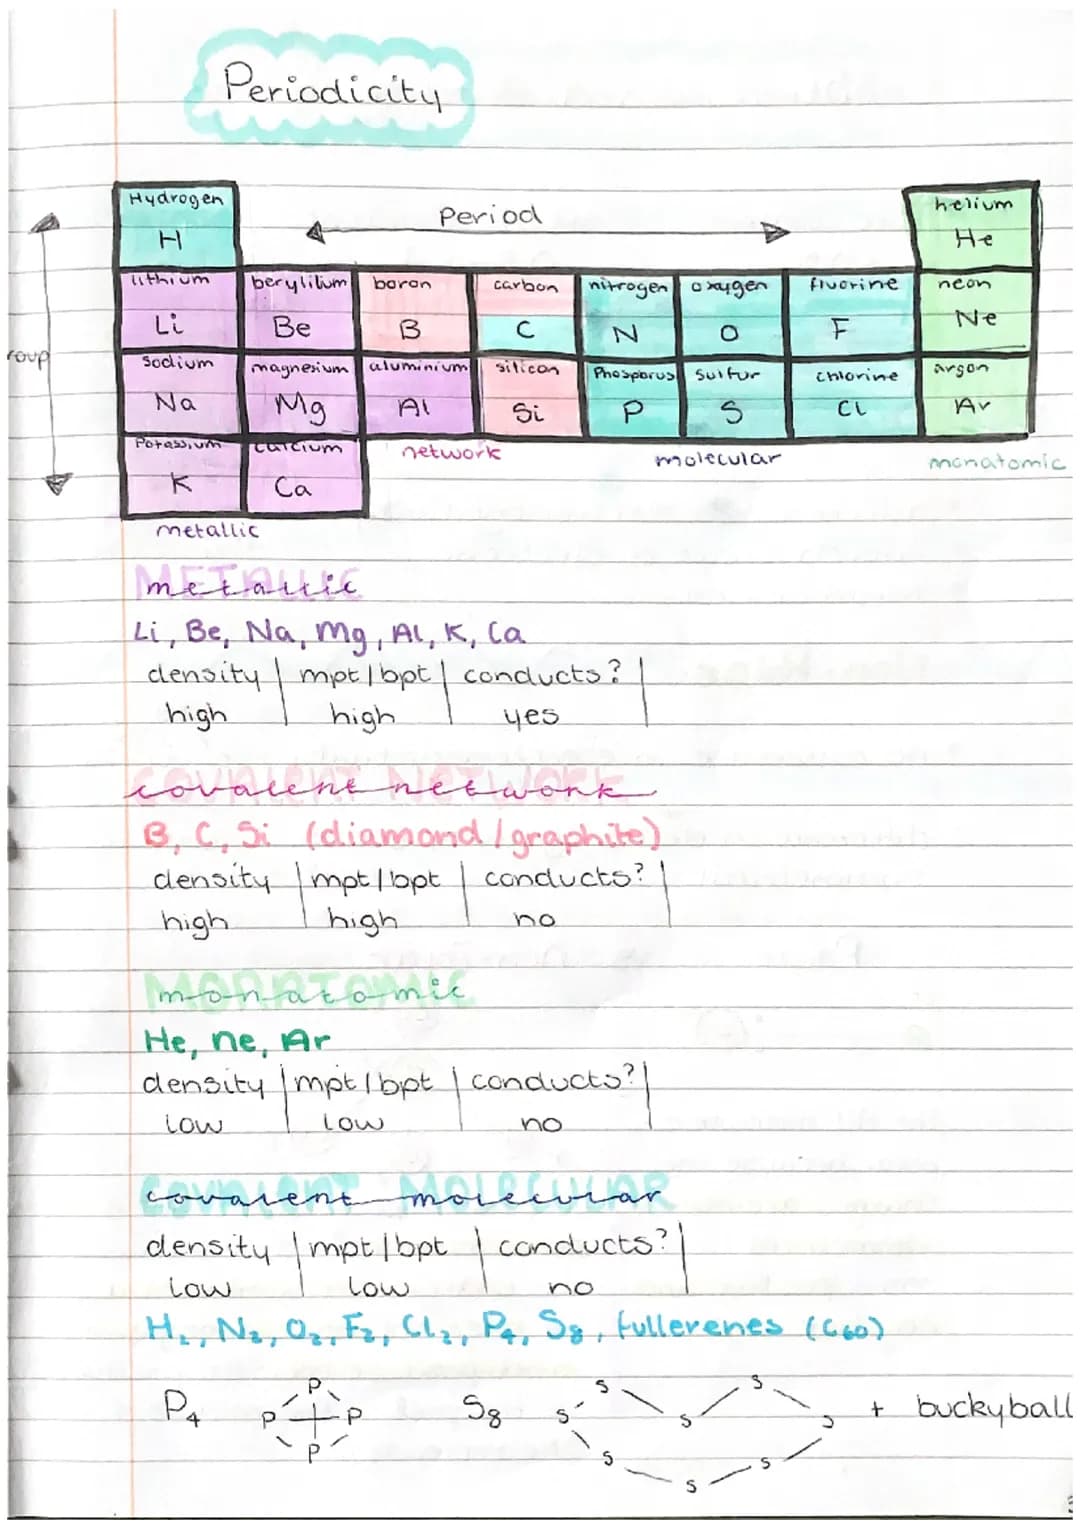 Periodicity
Hydrogen
H
Period
helium
He
lithium berylilum boron carbon nitrogen oxygen fluorine neon
Li Be B C N O F Ne
roup
Sodium magnesium aluminium silicon Phosporus Sulfur chlorine argon
Na Mg Al Si P S Cl Ar
Potassium calcium network molecular monatomic
K Ca
metallic
METALLIC
metallic
Li, Be, Na, Mg, Al, K, Ca
density mpt/bpt conducts?
high high yes
COVALENT NETWORK
covalent network
B, C, Si (diamond/graphite)
density mpt/bpt conducts?
high high no
MONATOMIC
monatomic
He, ne, Ar
density mpt/bpt conducts?
low low no
COVALENT MOLECULAR
covalent molecular
density mpt/bpt conducts?
low low no
H₂, N₂, O₂, F₂, Cl₂, P₄, S₈, fullerenes (C60)
P₄ P P P P S₈ S S S S S S S S + buckyball